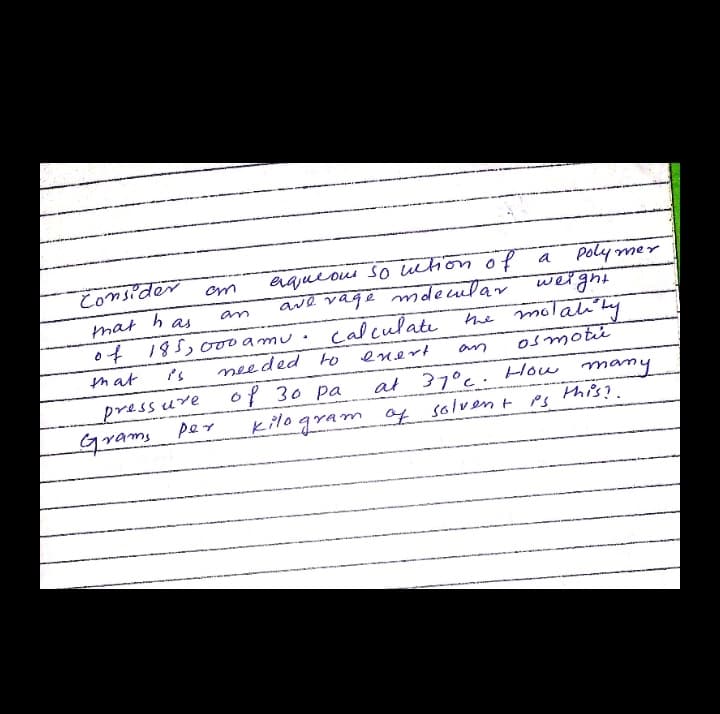 Consider an aqueous solution of a polymer
that has an average molecular weight
of 185,000 amu. Calculate the molality
that is needed to exert an osmotic
pressure of 30 Pa at 37°C. How many
Grams per kilogram of solvent is this?.